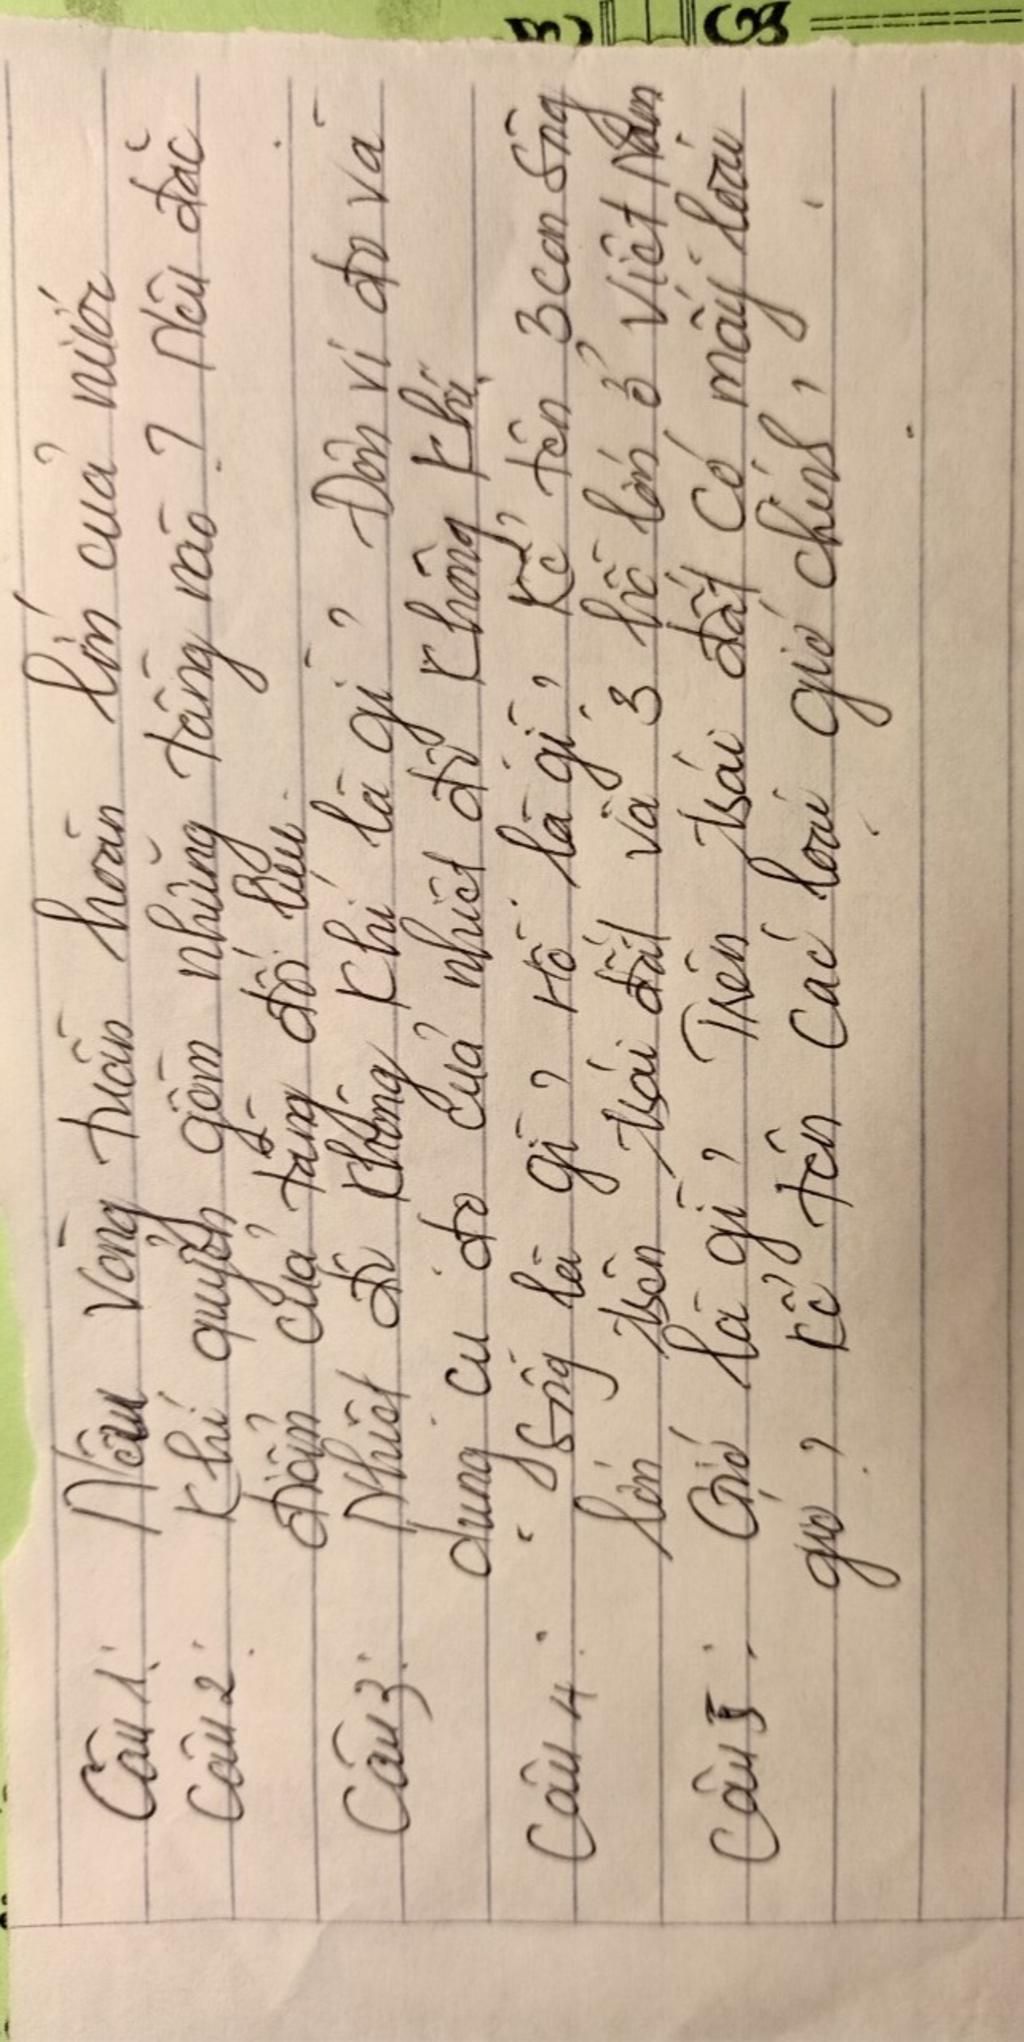 Câu 1: Nêu vòng tuần hoàn lớn của nước
Câu 2: Khí quyển gồm những tầng nào? Nêu đặc
điểm của tầng đối lưu.
Câu 3: Nhiệt độ không khí là gì? Đơn vị đo và
dụng cụ đo của nhiệt độ không khí.
Câu 4: Sông là gì? Hồ là gì? Kể tên 3 con sông
lớn trên trái đất và 3 hồ lớn ở Việt Nam
Câu 5: Gió là gì? Trên trái đất có mấy loại
gió? Kể tên các loại gió chính?